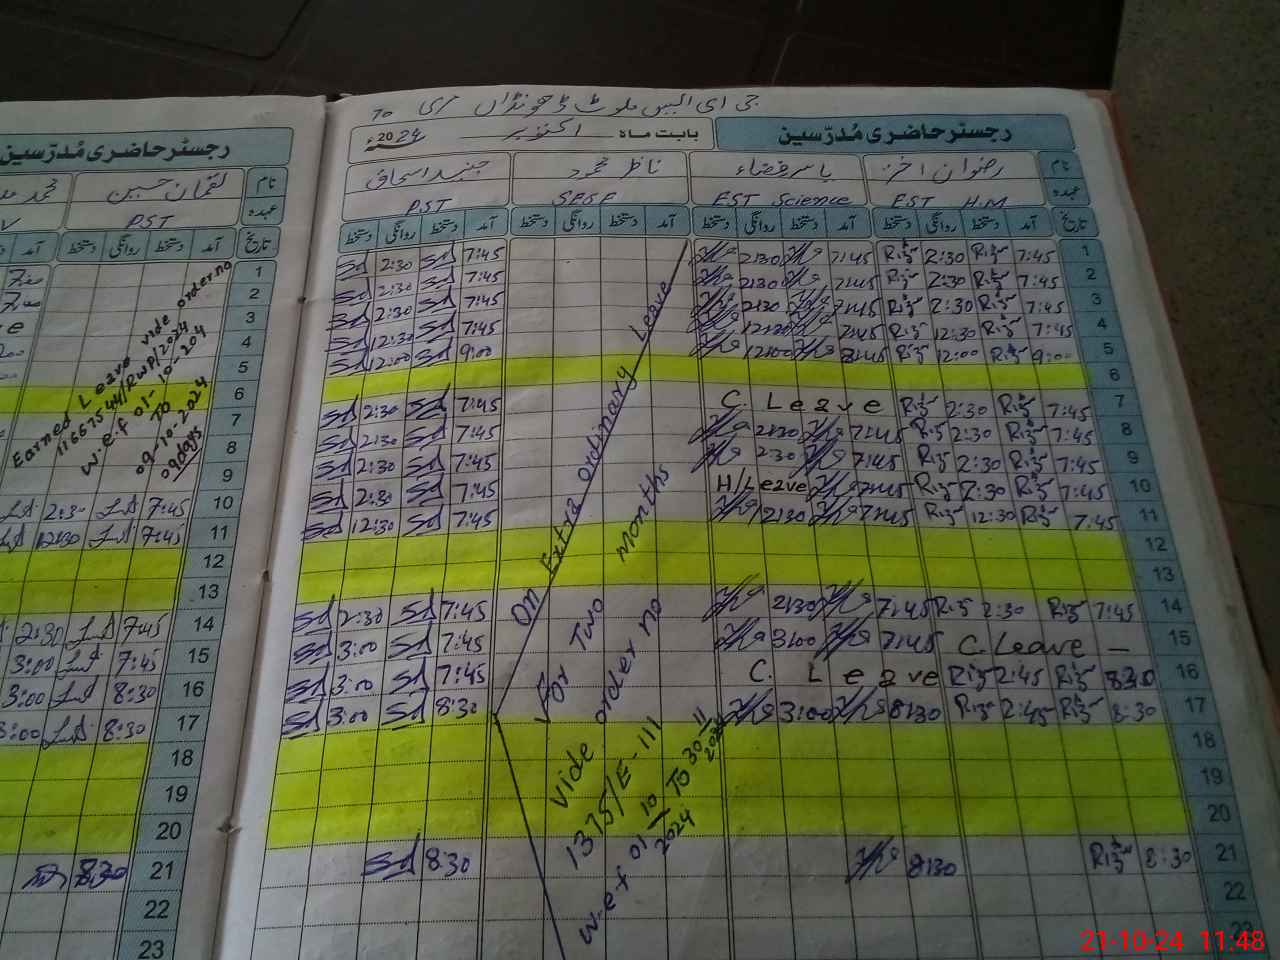 جی ای ایس ملوٹ ڈھونڈاں
To
رجسٹر حاضری مُدرّسین
بابت ماہ اکتوبر 2024ء
نام رضوان اختر یاسر فضاء ناظر محمود جنید اسحاق
عہدہ EST H.M EST Science SESE PST
تاریخ آمد دستخط روانگی دستخط آمد دستخط روانگی دستخط آمد دستخط روانگی دستخط آمد دستخط روانگی دستخط
1 7:45 Riz 2:30 Riz 7:45 2:30 7:45 Sd 2:30 Sd
2 7:45 Riz 2:30 Riz 7:45 2:30 7:45 Sd 2:30 Sd
3 7:45 Riz 2:30 Riz 7:45 2:30 7:45 Sd 2:30 Sd
4 7:45 Riz 12:30 Riz 7:45 12:30 7:45 Sd 12:30 Sd
5 9:00 Riz 12:00 Riz 8:45 12:00 9:00 Sd 12:00 Sd
6
7 7:45 Riz 2:30 Riz C. Leave 7:45 Sd 2:30 Sd
8 7:45 Riz 2:30 Riz 7:45 2:30 7:45 Sd 2:30 Sd
9 7:45 Riz 2:30 Riz 7:45 2:30 7:45 Sd 2:30 Sd
10 7:45 Riz 2:30 Riz 7:45 H/Leave 7:45 Sd 2:30 Sd
11 7:45 Riz 12:30 Riz 7:45 12:30 7:45 Sd 12:30 Sd
12
13
14 7:45 Riz 2:30 Riz 7:45 2:30 7:45 Sd 2:30 Sd
15 C. Leave — 7:45 3:00 7:45 Sd 3:00 Sd
16 8:30 Riz 2:45 Riz C. Leave 7:45 Sd 3:00 Sd
17 8:30 Riz 2:45 Riz 8:30 3:00 8:30 Sd 3:00 Sd
18
19
20
21 8:30 Riz 8:30 8:30 Sd
22
23
On Extra ordinary Leave
For Two Months
Vide order no
1375/E-111
w.e.f 01/10/2024 To 30-11-2024
رجسٹر حاضری مُدرّسین
نام لقمان حسین محمد
عہدہ PST
تاریخ آمد دستخط روانگی دستخط آمد
1 7:00
2 7:00
3
4
5
6
7
8
9
10 7:45 LA 2:30 LA
11 7:45 LA 12:30 LA
12
13
14 7:45 LA 2:30
15 7:45 LA 3:00
16 8:30 LA 3:00
17 8:30 LA 3:00
18
19
20
21 8:30
22
23
Earned Leave vide order no
1166754/RWP/2024
w.e.f 01-10-204
TO
09-10-2024
09days
21-10-24 11:48